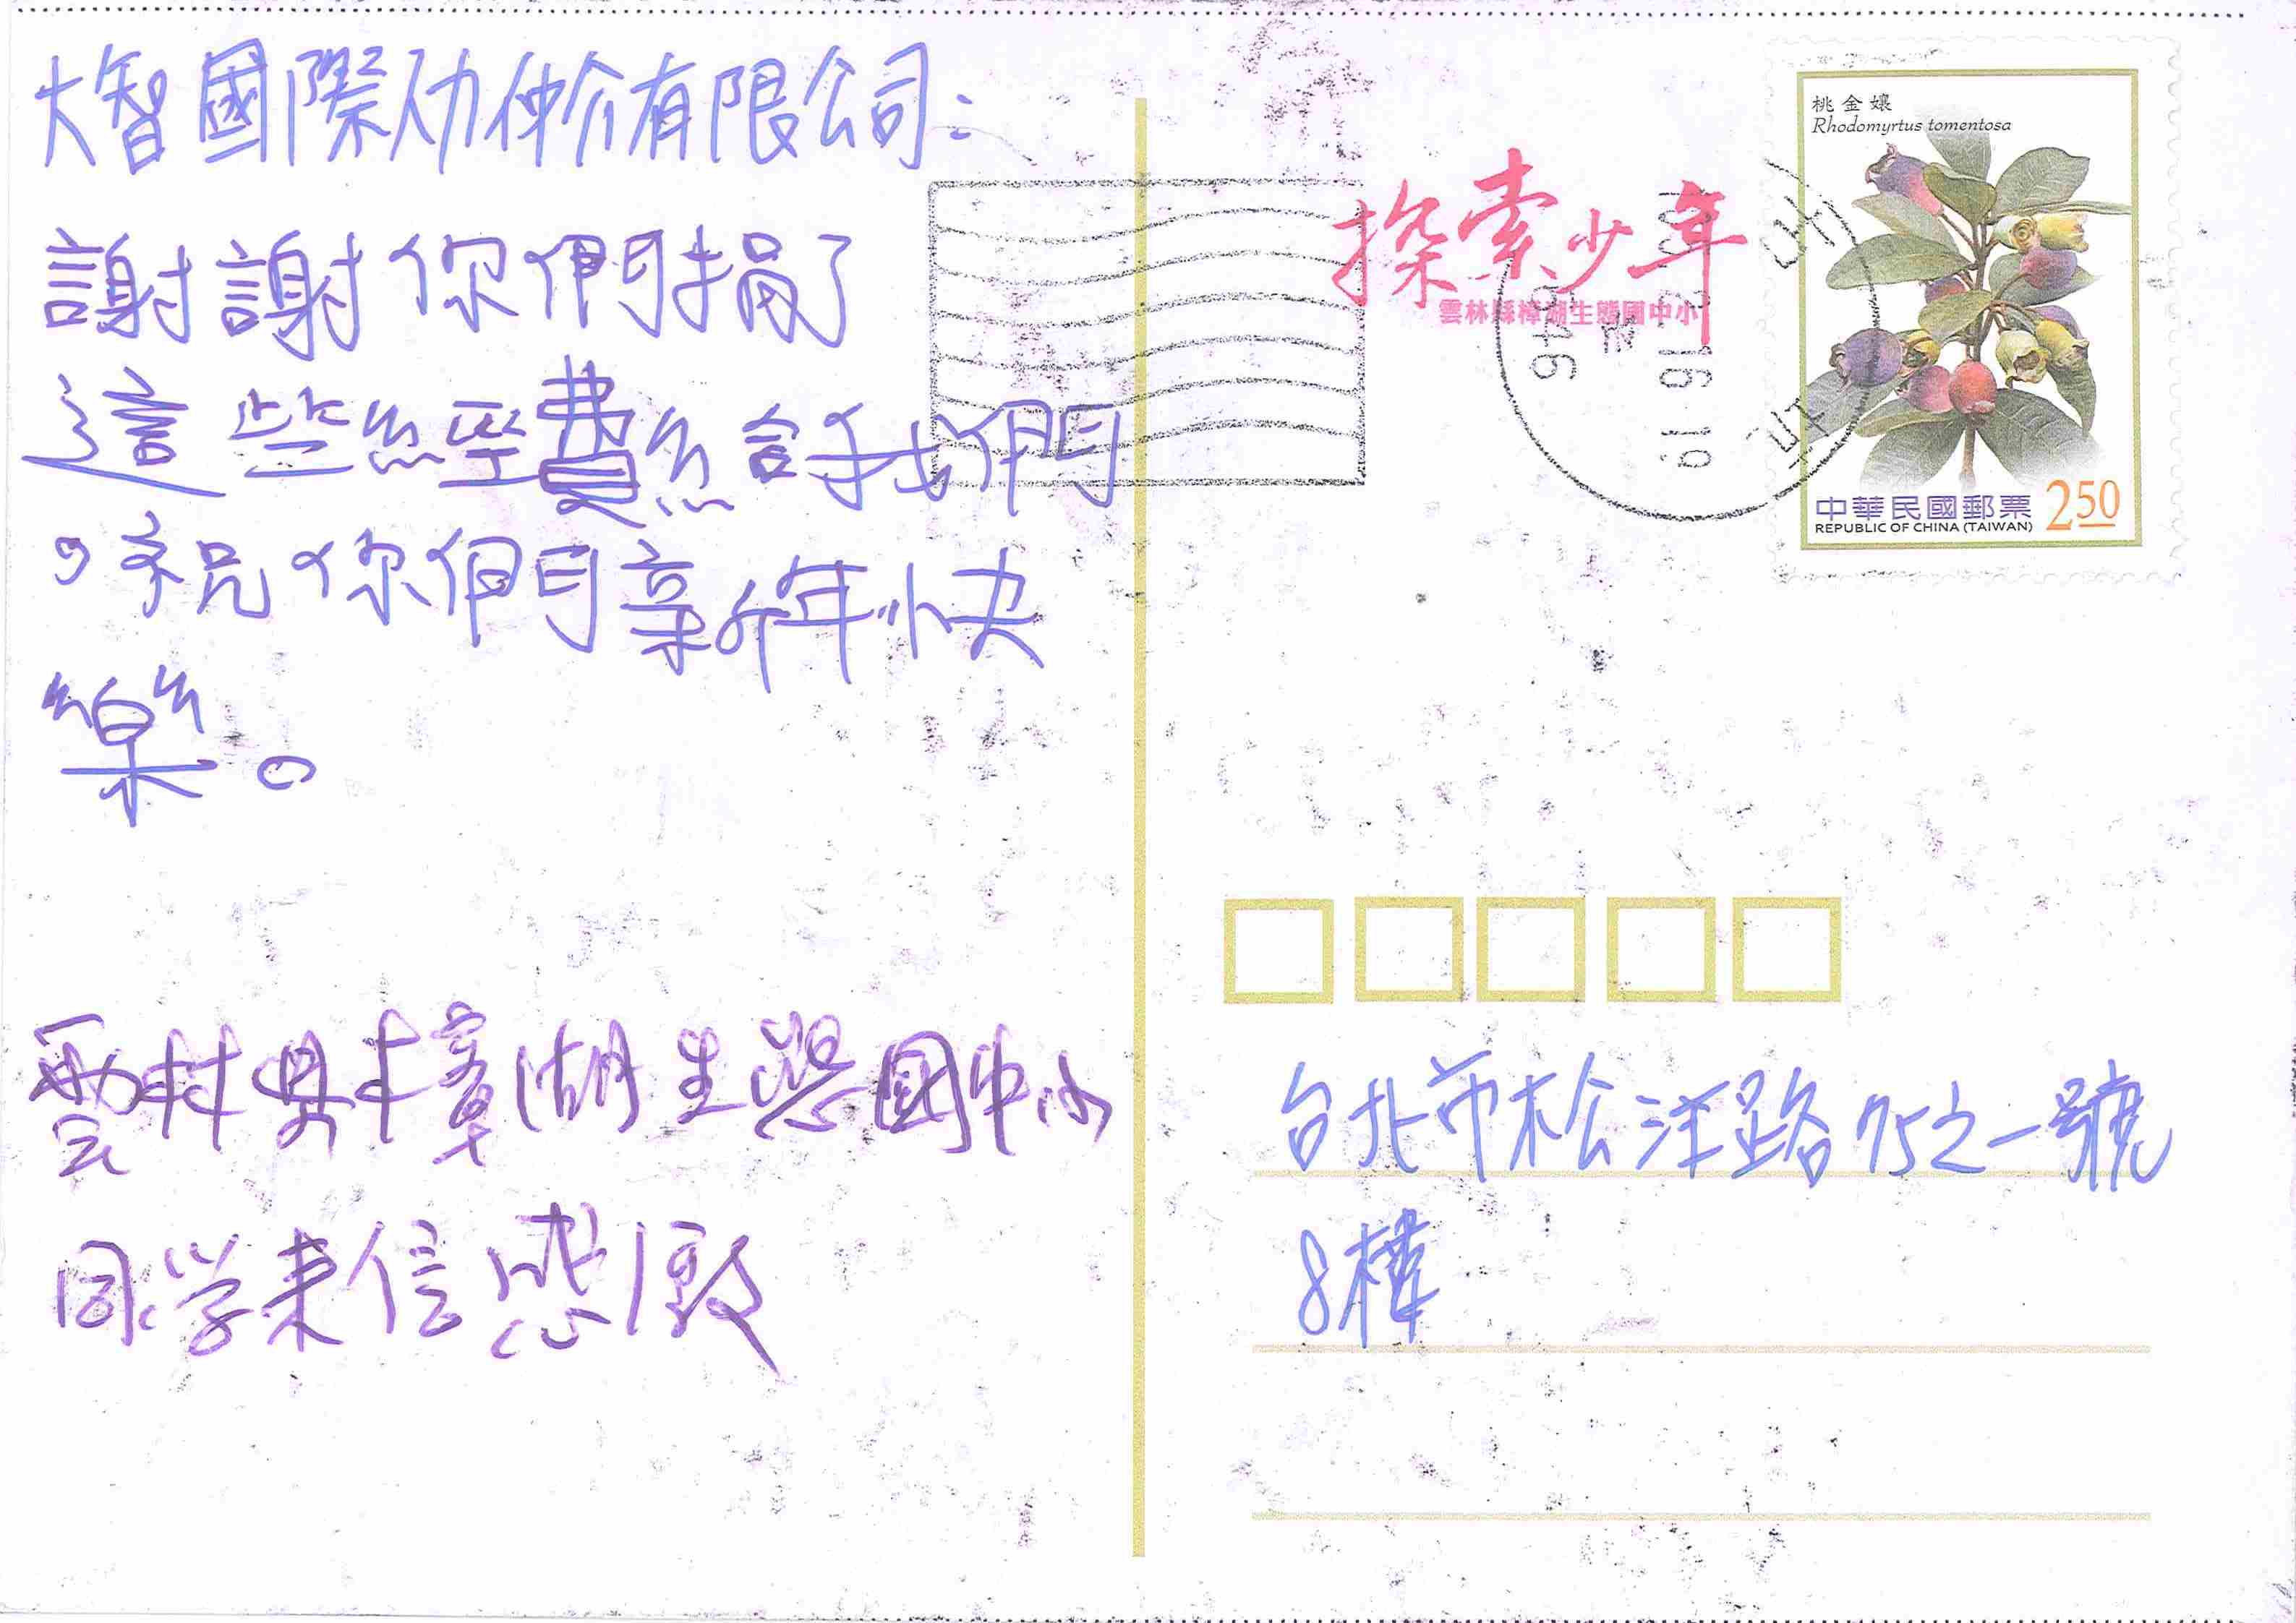 大智國際人力仲介有限公司:
謝謝你們捐了
這些經費給我們
,祝你們新年快
樂。
雲林縣樟湖生態國中小
同學来信感激
探索少年
雲林縣樟湖生態國中小
桃金孃
Rhodomyrtus tomentosa
中華民國郵票 2.50
REPUBLIC OF CHINA (TAIWAN)
台北市松江路75之一號
8樓